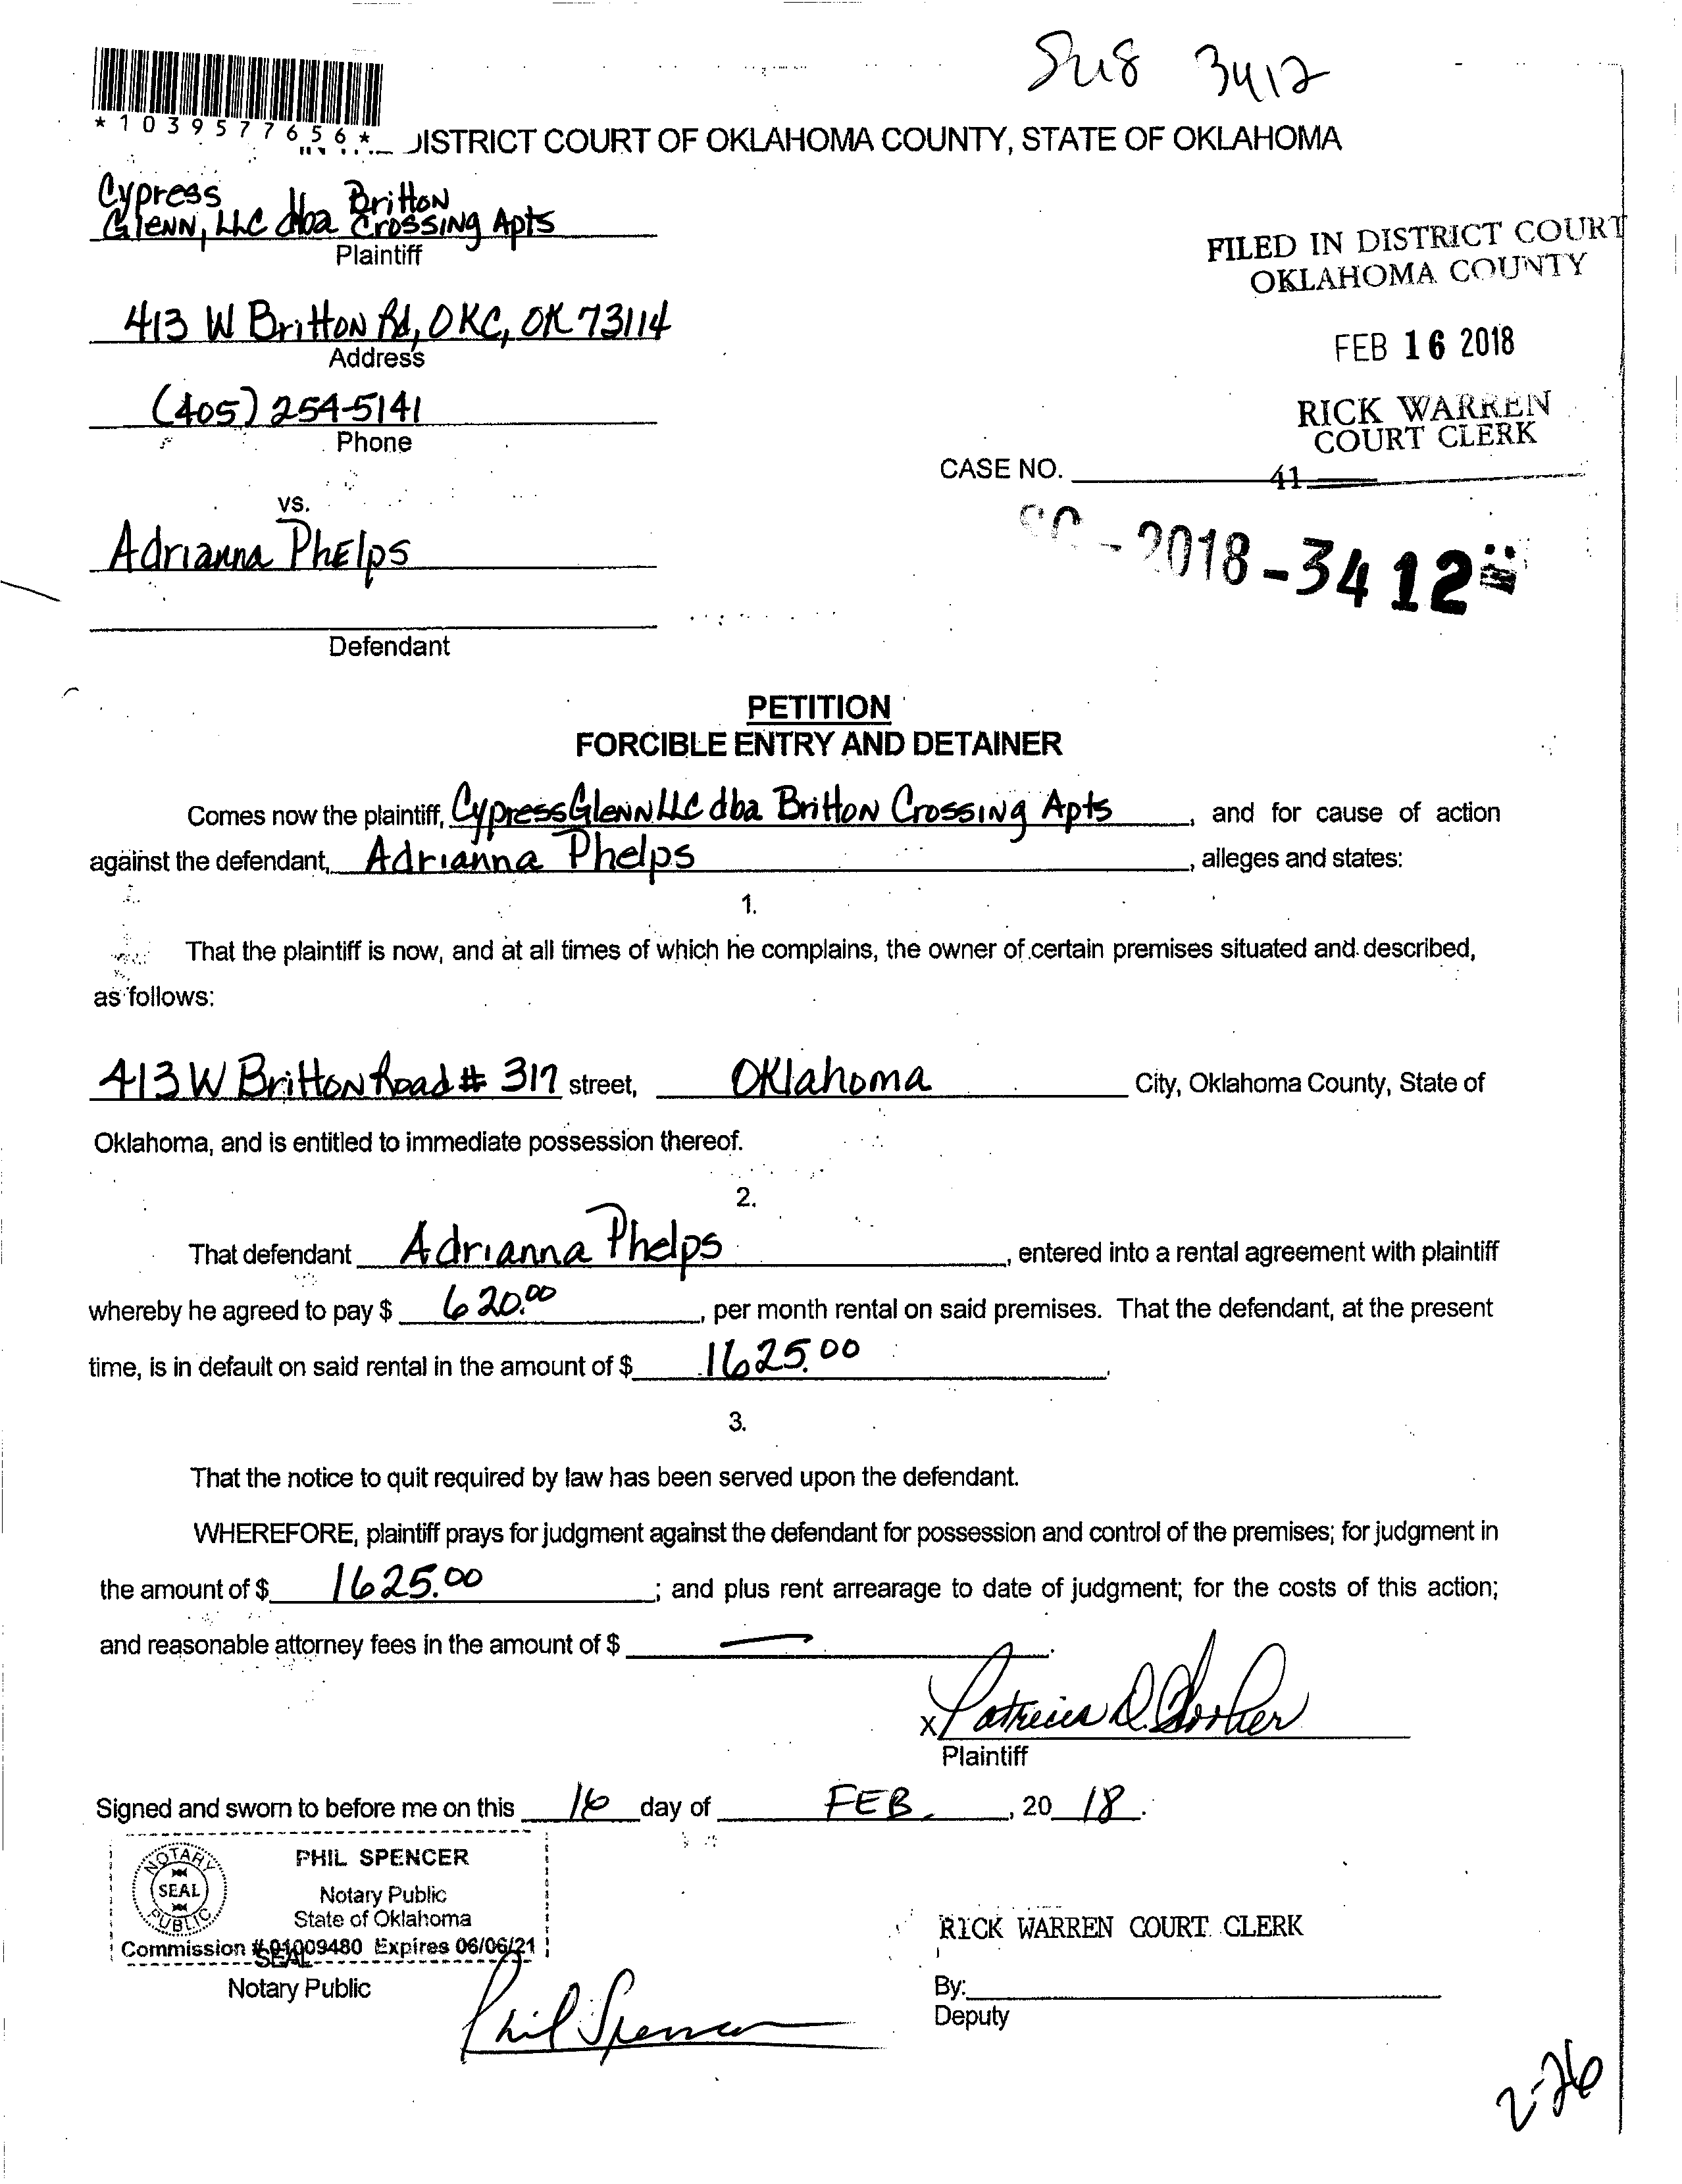 3412
*1039577656*
DISTRICT COURT OF OKLAHOMA COUNTY, STATE OF OKLAHOMA
Cypress
Glenn, LLC dba Britton Crossing Apts
Plaintiff
FILED IN DISTRICT COURT
OKLAHOMA COUNTY
413 W Britton Rd, OKC, OK 73114
Address
FEB 16 2018
(405) 254-5141
Phone
RICK WARREN
COURT CLERK
CASE NO.
41
vs.
SC-2018-3412
Adrianna Phelps
Defendant
PETITION
FORCIBLE ENTRY AND DETAINER
Comes now the plaintiff, Cypress Glenn LLC dba Britton Crossing Apts, and for cause of action
against the defendant, Adrianna Phelps, alleges and states:
1.
That the plaintiff is now, and at all times of which he complains, the owner of certain premises situated and described,
as follows:
413 W Britton Road # 317 street, Oklahoma City, Oklahoma County, State of
Oklahoma, and is entitled to immediate possession thereof.
2.
That defendant Adrianna Phelps, entered into a rental agreement with plaintiff
whereby he agreed to pay $ 620.00, per month rental on said premises. That the defendant, at the present
time, is in default on said rental in the amount of $ 1625.00.
3.
That the notice to quit required by law has been served upon the defendant.
WHEREFORE, plaintiff prays for judgment against the defendant for possession and control of the premises; for judgment in
the amount of $ 1625.00; and plus rent arrearage to date of judgment; for the costs of this action;
and reasonable attorney fees in the amount of $ —.
x Patricia D.
Plaintiff
Signed and sworn to before me on this 16 day of FEB., 20 18.
NOTARY PUBLIC
SEAL
PHIL SPENCER
Notary Public
State of Oklahoma
Commission # 01009480 Expires 06/06/21
SEAL
Notary Public
Phil Spencer
RICK WARREN COURT CLERK
By:
Deputy
2-26